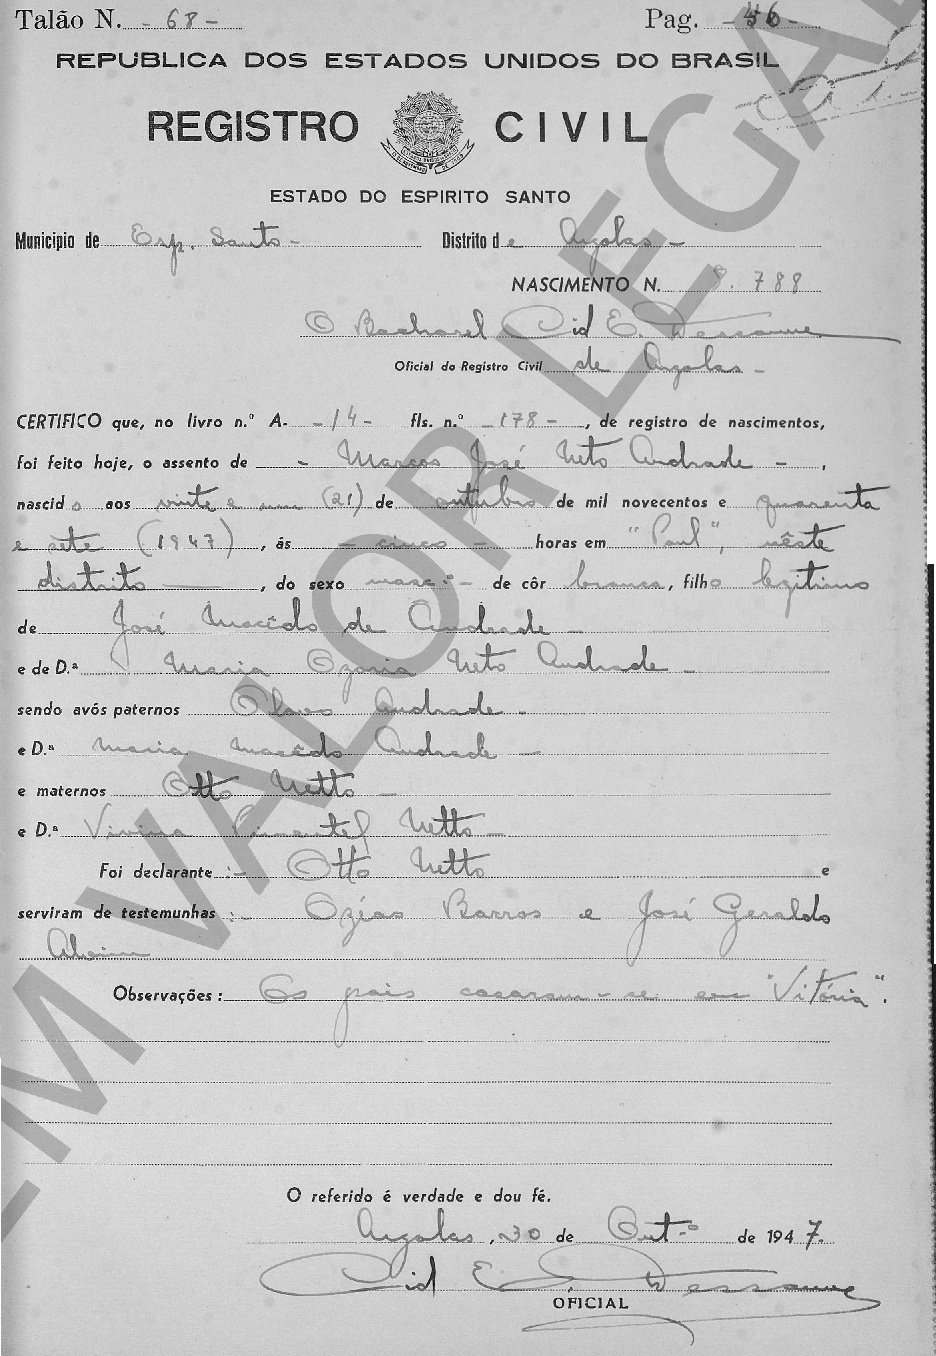 Talão N. - 68 - Pag. - 46 -
REPUBLICA DOS ESTADOS UNIDOS DO BRASIL
REGISTRO CIVIL
ESTADO DO ESPIRITO SANTO
Municipio de Esp. Santo - Distrito de Argolas -
NASCIMENTO N. 8.788
O Bacharel Cid E. Dessaune
Oficial do Registro Civil de Argolas -
CERTIFICO que, no livro n.º A- - 14 - fls. n.º - 178 -, de registro de nascimentos,
foi feito hoje, o assento de - Marcos José Neto Andrade - ,
nascido aos vinte e um (21) de outubro de mil novecentos e quarenta
e sete (1947), ás - cinco - horas em "Paul", nêste
distrito, do sexo masc.º - de côr branca, filho legitimo
de José Macêdo de Andrade -
e de D.ª Maria Ozoria Neto Andrade -
sendo avós paternos Olavo Andrade -
e D.ª Maria Macêdo Andrade -
e maternos Otto Netto -
e D.ª Vivina Pimentel Netto -
Foi declarante :- Otto Netto e
serviram de testemunhas :- Ozéas Barros e José Geraldo
Observações : Os pais casaram-se em "Vitória".
O referido é verdade e dou fé.
Argolas, 30 de Out.º de 1947.
Cid E. Dessaune
OFICIAL
EM VALOR LEGAL